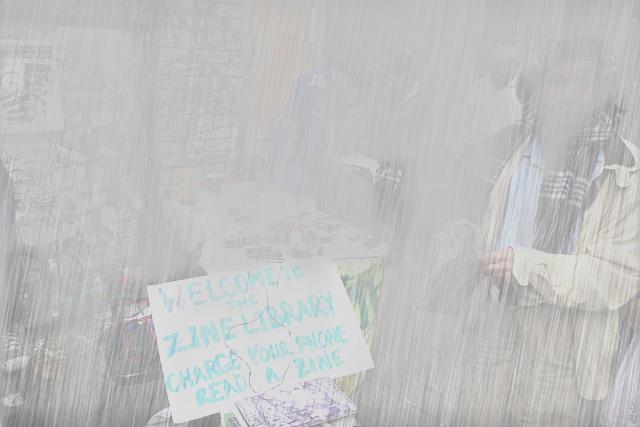 WELCOME TO
THE
ZINE LIBRARY
CHARGE YOUR PHONE
READ A ZINE